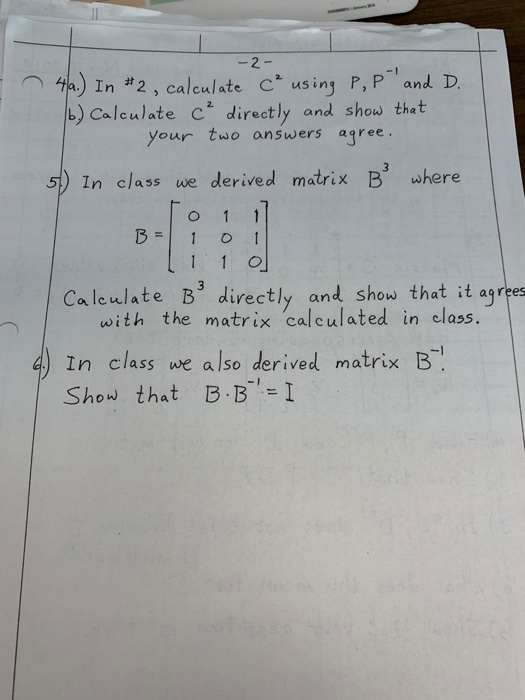 -2-
4a.) In #2, calculate C² using P, P⁻¹ and D.
b.) Calculate C² directly and show that
your two answers agree.
5.) In class we derived matrix B³ where
B = [ 0 1 1
1 0 1
1 1 0 ]
Calculate B³ directly and show that it agrees
with the matrix calculated in class.
6.) In class we also derived matrix B⁻¹.
Show that B·B⁻¹ = I